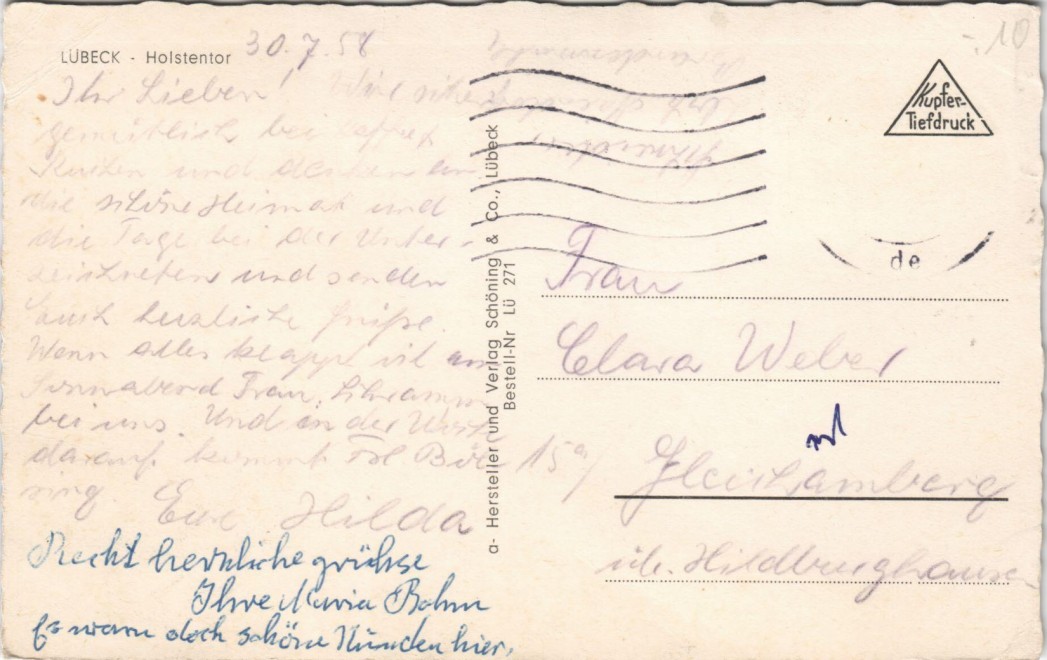 LÜBECK - Holstentor
30.7.58
-.10
Ihr Lieben! Wir sitzen
gemütlich bei Kaffee &
Kuchen und denken an
die schöne Heimat und
die Tage bei der Unter-
zeichneten und senden
Euch herzliche Grüße.
Wenn alles klappt ist am
Sonnabend Frau Schramm
bei uns. Und in der Woche
darauf kommt Frl
Eure Hilda
Recht herzliche grühse
Ihre Maria Bohm
Es waren doch schöne Stunden hier.
a- Hersteller und Verlag Schöning & Co., Lübeck
Bestell-Nr Lü 271
Kupfer-
Tiefdruck
de
Frau
Clara Weber
15a
Gleichamberg
üb. Hildburghausen